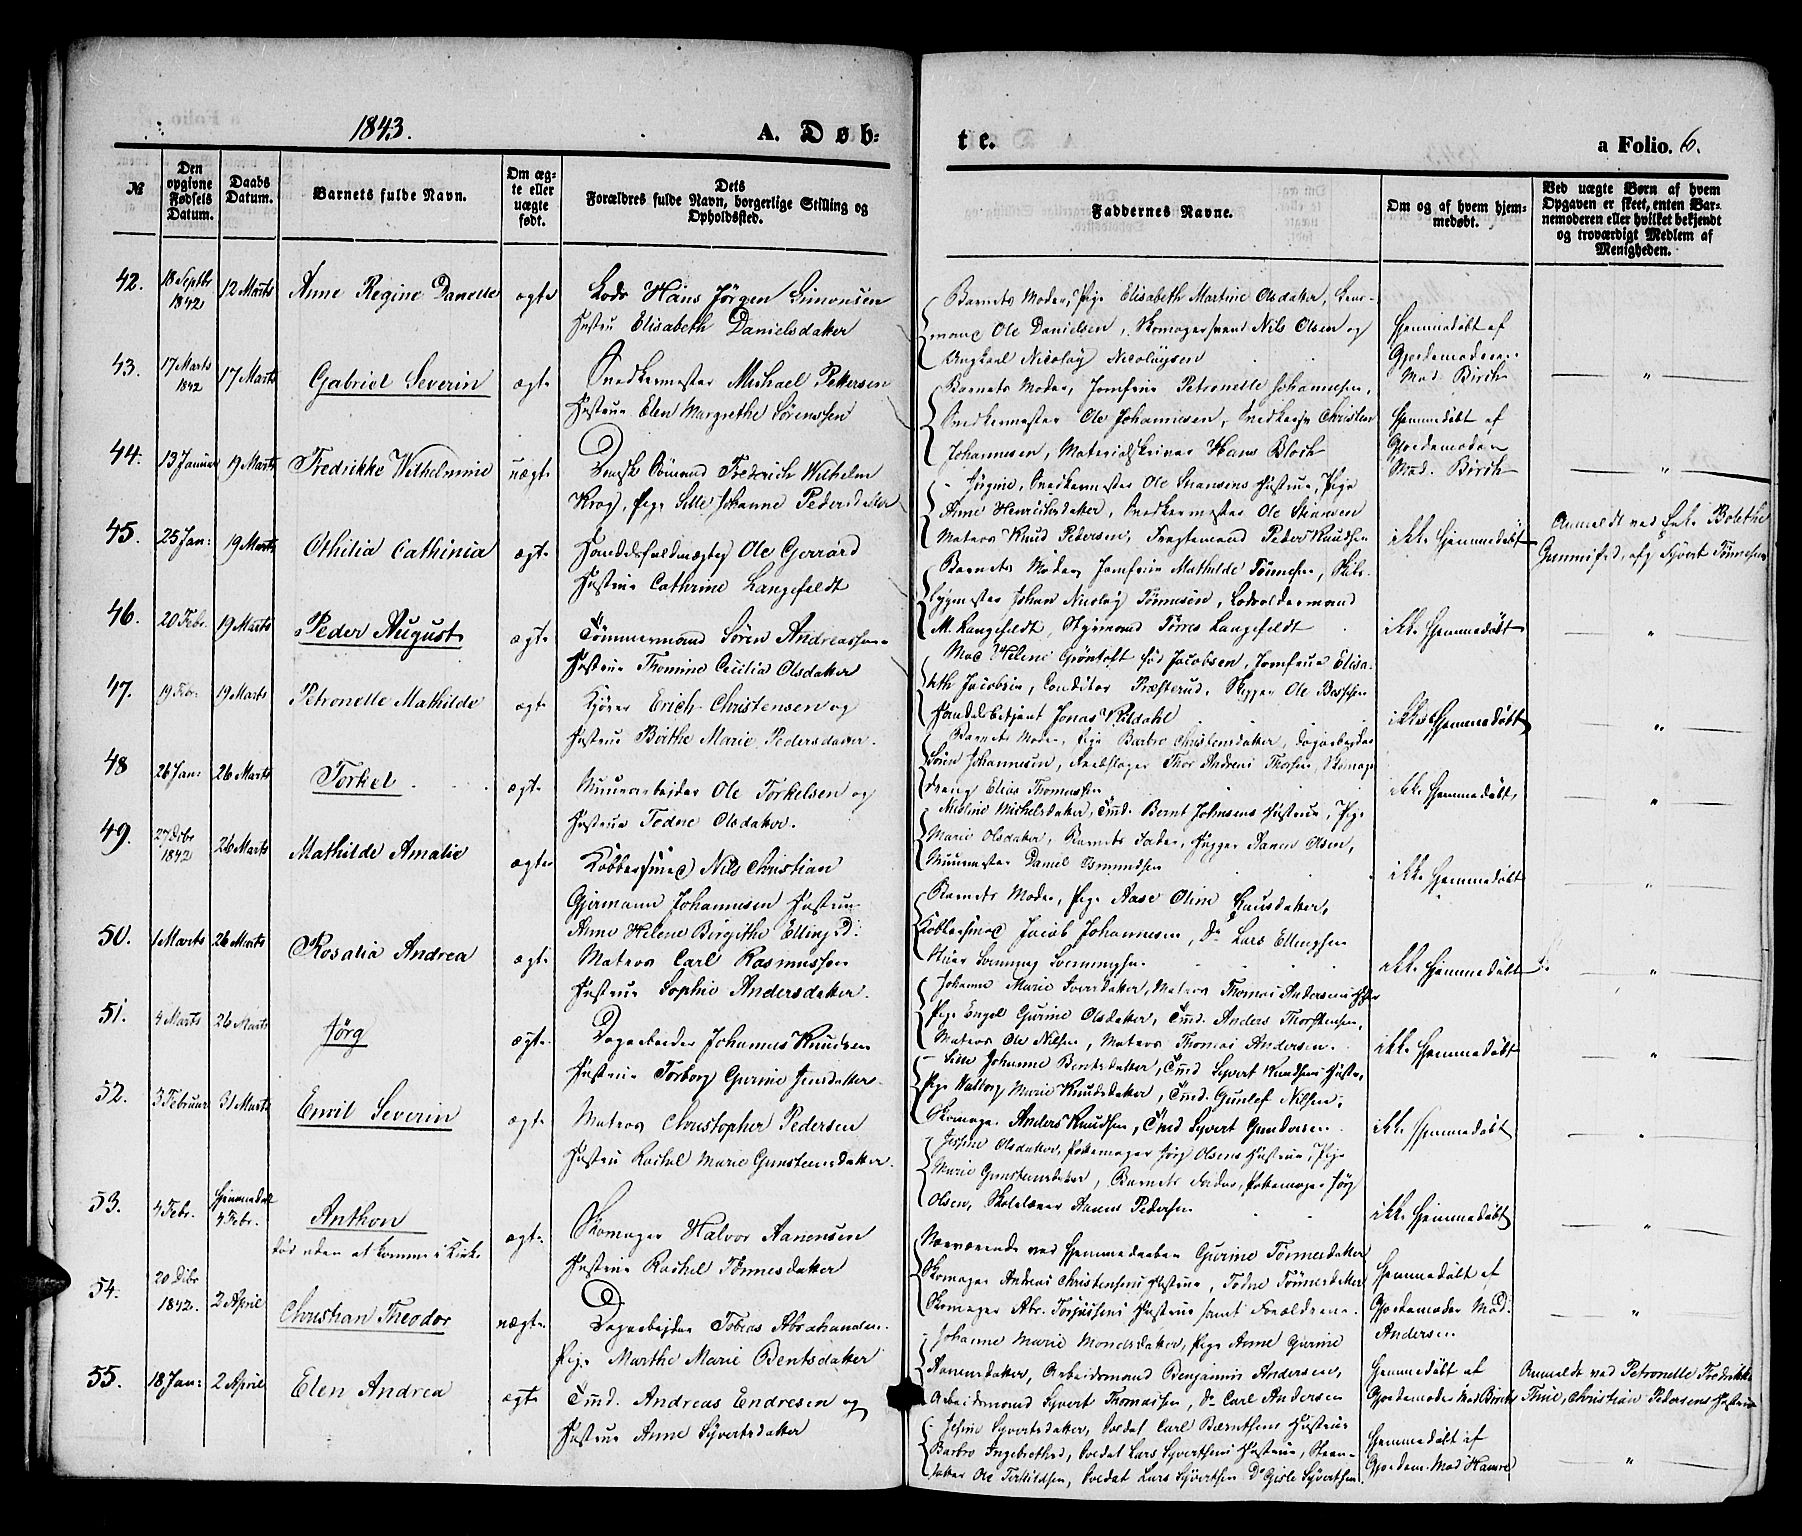 1843.
A. Døb=
te.
a Folio. 6.
№
Den opgivne Fødsels Datum.
Daabs Datum.
Barnets fulde Navn.
Om ægte eller uægte født.
Dets Forældres fulde Navn, borgerlige Stilling og Opholdssted.
Faddernes Navne.
Om og af hvem hjemmedøbt.
Ved uægte Børn af hvem Opgaven er skeet, enten Barnemoderen eller hvilket bekjendt og troværdigt Medlem af Menigheden.
42. 18 Septbr 1842 12 Marts Anne Regine Danelle ægte Lods Hans Jørgen Simonsen
Hustru Elisabeth Danielsdatter
Barnets Moder, Pige Elisabeth Martine Olsdatter,
Ole Danielsen, Skomagersvend Nils Olsen og
Ungkarl Nicolay Nicolaysen
Hjemmedøbt af
Gjordemoderen
Mad. Birch
43. 17 Marts 1842 17 Marts Gabriel Severin ægte Snedkermester Michael Pettersen
Hustrue Elen Margrethe Sørenssen
Barnets Moder, Jomfrue Petronelle Johannesen,
Snedkermester Ole Johannesen, Christian
Johannesen, Materialskriver Hans Bloch
Hjemmedøbt af
Gjordemoder
Mad. Birch
44. 13 Januar 19 Marts Fredrikke Wilhelmine uægte Dansk Sømand Frederich Wilhelm
Krog, Pige Sille Johanne Pedersdatter
Jørgine, Snedkermester Ole Hustrue, Pige
Anne Henriksdatter, Snedkermester Ole
Matros Knud Pedersen, Peder Knudsen
ikke hjemmedøbt
Anmeldt ved Bolethe
Sivert Tønnesen
45. 25 Jan: 19 Marts Othilia Cathinia ægte Handelsfuldmægtig Ole Gerrard
Hustrue Cathrine Langefeldt
Barnets Moder, Jomfrue Mathilde Tønnesen, Skibs-
bygmester Johan Nicolay Tønnesen, Lodsoldermand
M. Langefeldt, Styrmand Tørres Langefeldt
ikke hjemmedøbt
46. 20 Febr. 19 Marts Peder August ægte Tømmermand Søren Andreassen
Hustrue Thomine Cecilia Olsdatter
Mad Helene Grøntoft fød Jacobsen, Jomfrue Elisa-
beth Jacobsen, Conditor Præsterud, Skipper Ole
Handelsbetjent Jonas Kildahl
ikke hjemmedøbt
47. 19 Febr. 19 Marts Petronelle Mathilde ægte Kjører Erich Christensen og
Hustrue Berthe Marie Pedersdatter.
Barnets Moder, Pige Barbro Christensdatter, Dagarbejder
Søren Johannesen, Thor Andreas Thorsen, Skomager
dreng Elias Thomassen
ikke hjemmedøbt
48 26 Jan: 26 Marts Torkel ægte Muurarbejder Ole Torkelsen og
Hustrue Todne Olsdatter.
Michelsdatter, Tmd. Bernt Johnsens Hustrue, Pige
Marie Olsdatter, Barnets Fader, Aanen Olsen,
Muurmester Daniel
ikke hjemmedøbt
49. 27 Dcbr 1842 26 Marts Mathilde Amalie ægte Kobbersmed Nils Christian
Gjermann Johannesen Hustrue
Anne Helene Birgithe Ellings D:
Barnets Moder, Pige Aase Oline
Kobbersmed Jacob Johannesen, Do Lars Ellingsen
ikke hjemmedøbt
50. 1 Marts 26 Marts Rosalia Andrea ægte Matros Carl Rasmussen
Hustrue Sophie Andersdatter.
Johanne Marie Iversdatter, Matros Thomas Andersens Hustrue
Pige Engel Gurine Olsdatter, Tmd. Anders Thorstensen,
Matros Ole Nilsen, Matros Thomas Andersen.
ikke hjemmedøbt
51. 4 Marts 26 Marts Jørg ægte Dagarbeider Johannes Knudsen
Hustrue Torborg Gurine Jensdatter
Johanne Bentsdatter, Tmd Syvert Knudsens Hustrue,
Pige Valborg Marie Knudsdatter, Tmd. Gunlef Nilsen,
Skomager Anders Knudsen, Tmd Syvert Gundersen.
ikke hjemmedøbt
52. 3 Februar 31 Marts Emil Severin ægte Matros Christopher Pedersen
Hustru Rachel Marie Gunsteensdatter
Olsdatter, Jørg Olsens Hustrue, Pige
Marie Gunsteensdatter, Barnets Fader, Jørg
Olsen, Skolelærer Aanen Pedersen
ikke hjemmedøbt
53. 4 Febr. Hjemmedøbt 4 Febr. Anthon
død uden at komme i Kirke
ægte Skomager Halvor Aanensen
Hustrue Rachel Tønnesdatter
Nærværende ved Hjemmedaaben Gurine Tønnesdatter
Skomager Andreas Christensens Hustrue, Todne Tønnesdatter
Skomager Abr. Hustrue samt Forældrene.
Hjemmedøbt af
Gjordemoder Mad.
Andersen
54. 20 Dcbr 1842. 2 April Christian Theodor uægte Dagarbejder Tobias Abrahamsen
Pige Marthe Marie Bentsdatter
Johanne Marie Monsdatter, Pige Anne Gurine
Aanensdatter, Arbeidsmand Benjamin Andersen,
Arbeidsmand Syvert Thomassen, Do Carl Andersen
Hjemmedøbt af
Gjordemoder Mad Birch
Anmeldt ved Petronelle Fredrikke
Christian Pedersens Hustrue
55. 18 Jan: 2 April Elen Andrea ægte Tmd. Andreas Endresen og
Hustrue Anne Syvertsdatter
Syvertsdatter, Soldat Carl Hustrue
Barbro Ingebrethsd, Soldat Lars Syvertsens Hustrue,
Ole Terkildsen, Soldat Lars Syvertsen Do Gisle Syvertsen.
Hjemmedøbt af
Gjordem. Mad Hamre